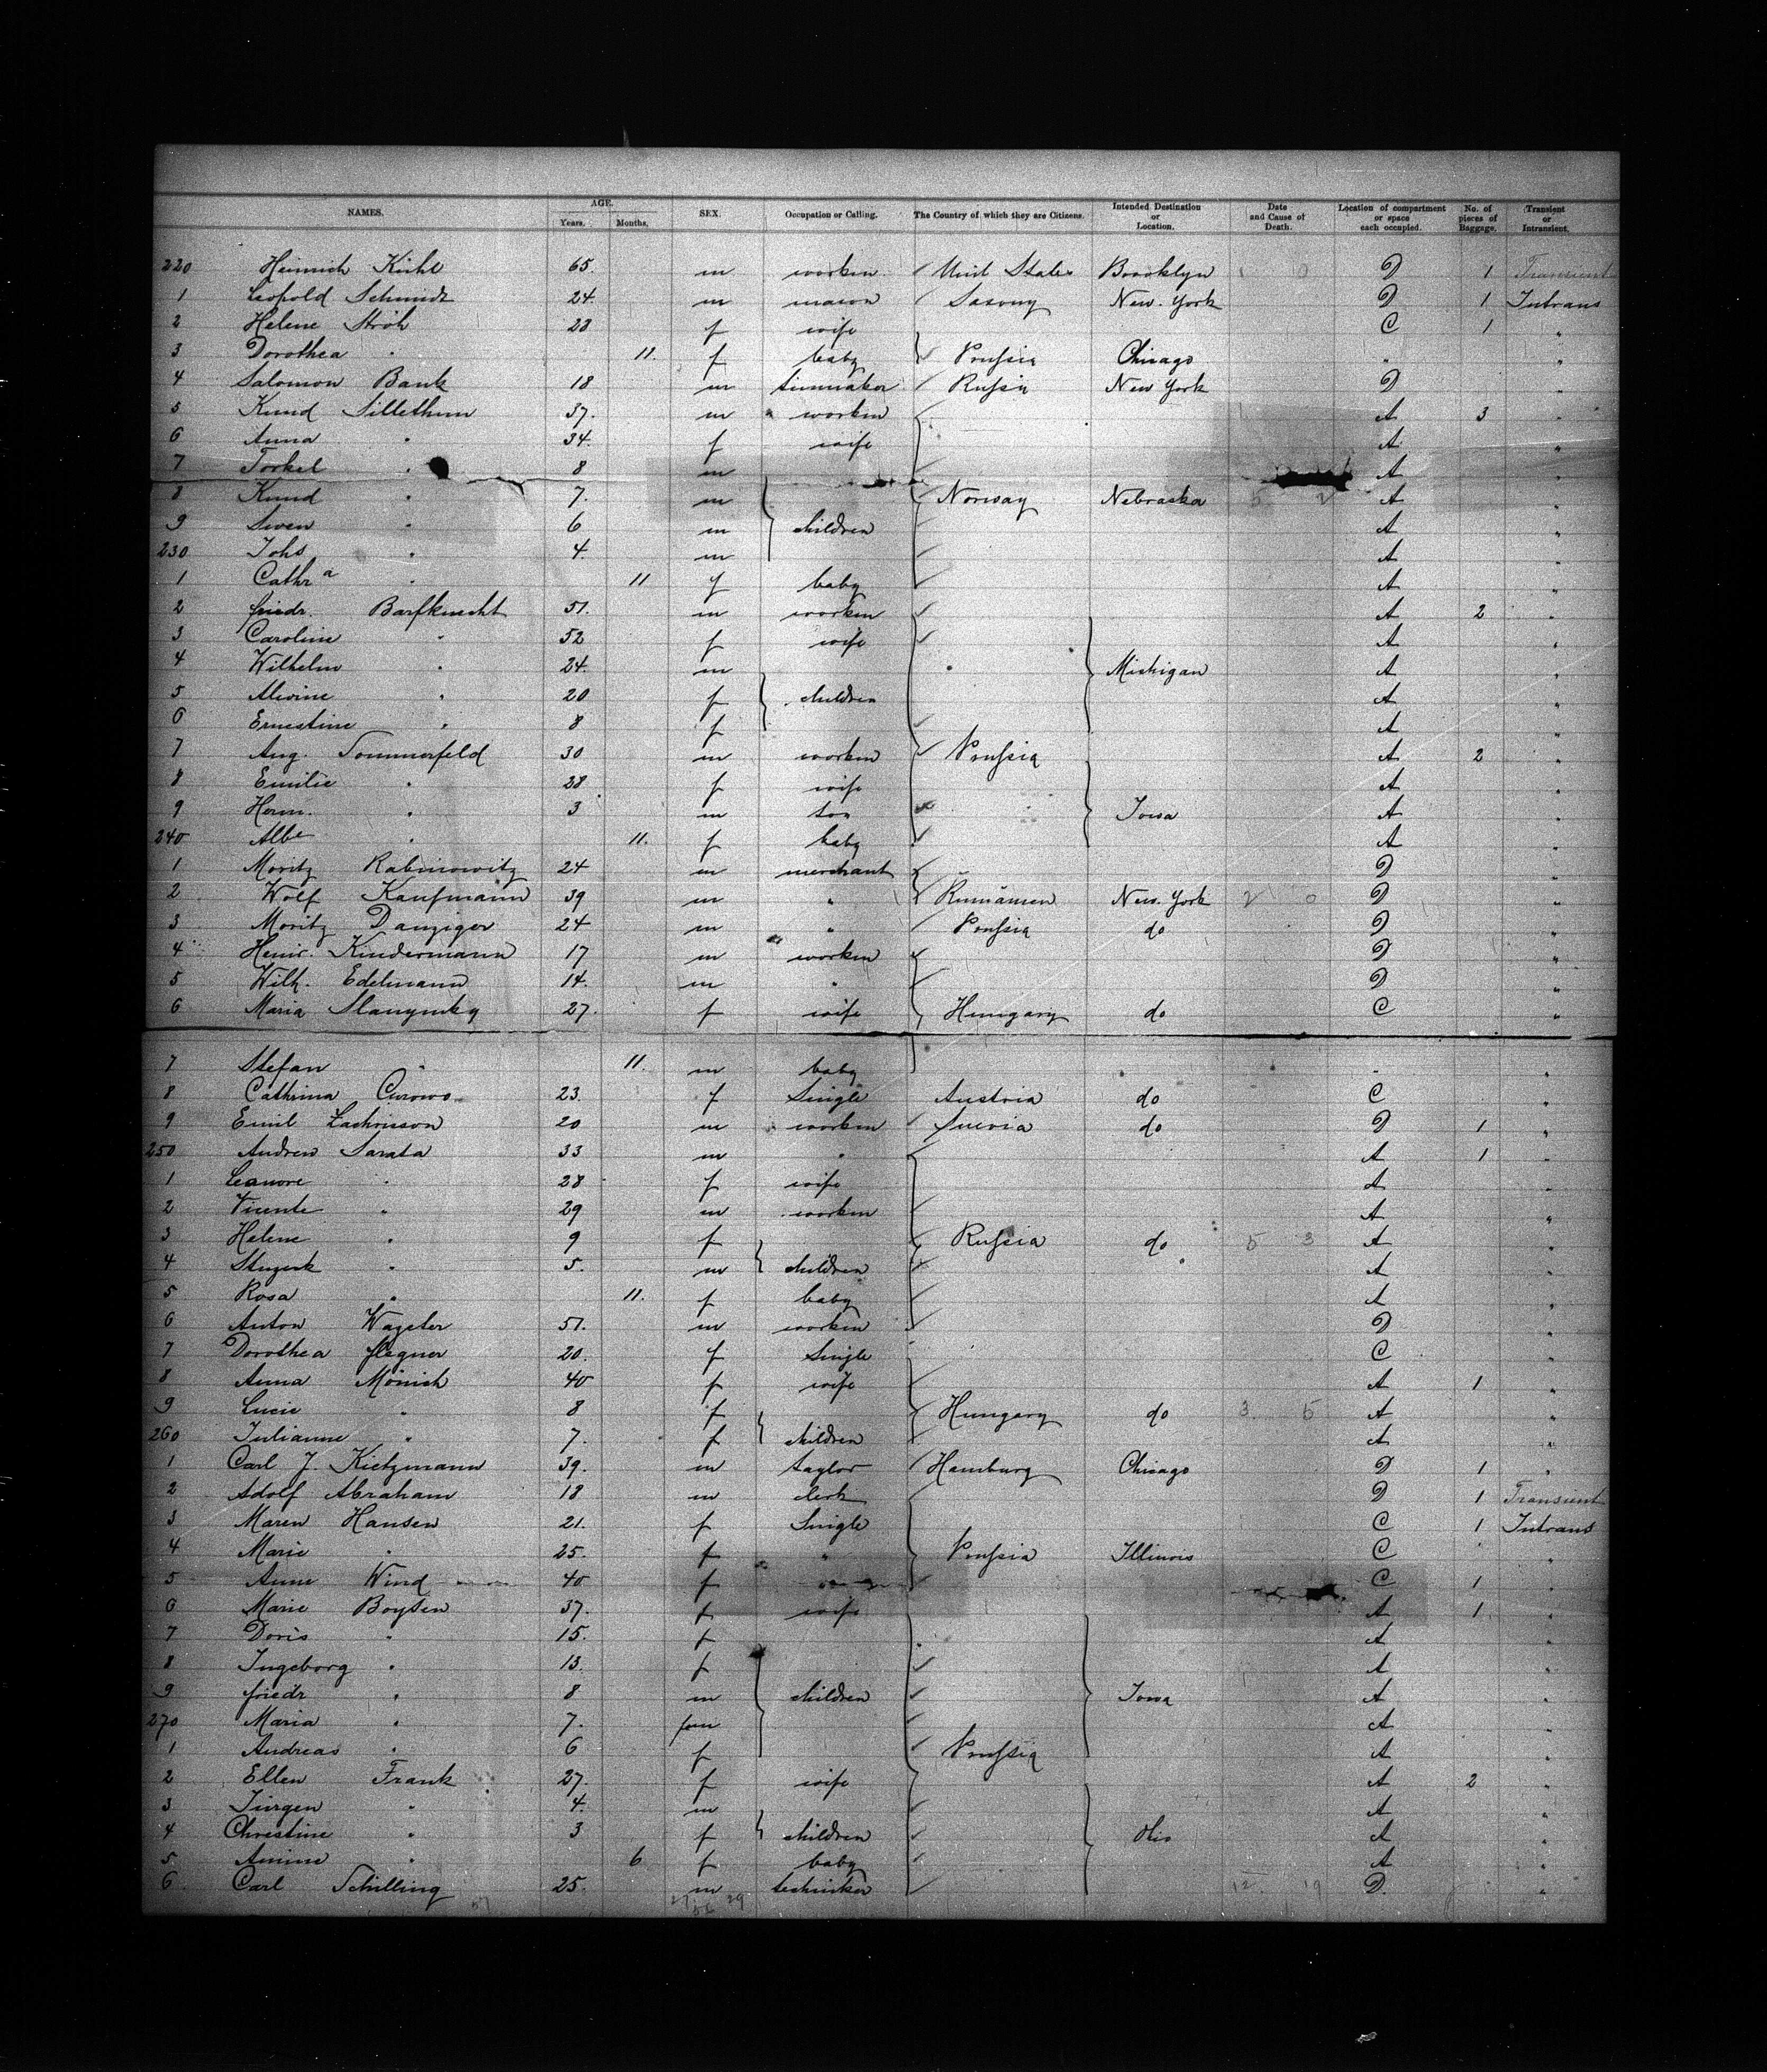 NAMES. AGE. Years. Months. SEX. Occupation or Calling. The Country of which they are Citizens. Intended Destination or Location. Date and Cause of Death. Location of compartment or space each occupied. No. of pieces of Baggage. Transient or Intransient.
220 Heinrich Kühl 65. m workm Unit States Brooklyn D 1 Transient
1 Leopold Schmidt 24. m mason Saxony New. York D 1 Intrans
2 Helene Ströh 28 f wife C 1 "
3 Dorothea " 11. f baby Prussia Chicago " "
4 Salomon Bank 18 m Russia New York D "
5 Knud 37. m workm A 3 "
6 Anna " 34. f wife A "
7 Torkel " 8 m A "
8 Knud " 7. m Norway Nebraska 5 2 A "
9 Swen " 6 m children A "
230 Johs " 4. m A "
1 Cathra " 11 f baby A "
2 friedr. Barfknecht 51. m workm A 2 "
3 Caroline " 52 f wife A "
4 Wilhelm " 24. m Michigan A "
5 Alwine " 20 f children A "
6 Ernestine " 8 f A "
7 Aug. Sommerfeld 30 m workm Prussia A 2 "
8 Emilie " 28 f wife A "
9 Herm. " 3 m son Iowa A "
240 Albe " 11. f baby A "
1 Moritz Rabinowitz 24 m merchant D "
2 Wolf Kaufmann 39 m " Rumänien New. York 2 0 D "
3 Moritz Danziger 24 m " Prussia do D "
4 Heinr. Kindermann 17 m workm D "
5 Wilh. Edelmann 14. m " D "
6 Maria 27. f wife Hungary do C "
7 Stefan " 11. m baby "
8 Cathrina 23. f Single Austria do C "
9 Emil Zachrisson 20 m workm Suevia do D 1 "
250 Andrew Sarata 33 m " A 1 "
1 Leanore " 28 f wife A "
2 Vicente " 29 m workm A "
3 Helene " 9 f Russia do 5 3 A "
4 " 5. m children A "
5 Rosa " 11. f baby A "
6 Anton 51. m workm D "
7 Dorothea flegner 20. f Single C "
8 Anna Mönich 40 f wife A 1 "
9 Lucie " 8 f Hungary do 3 5 A "
260 Julianne " 7. f children A "
1 Carl J. Kietzmann 39. m taylor Hamburg Chicago D 1 "
2 Adolf Abraham 18 m clerk D 1 Transient
3 Maren Hansen 21. f Single C 1 Intrans
4 Marie " 25. f " Prussia Illinois C "
5 Anne Wind 40 f C 1 "
6 Marie Boysen 37. f wife A 1 "
7 Doris " 15. f A "
8 Ingeborg " 13. f A "
9 friedr " 8 m children Iowa A "
270 Maria " 7. A "
1 Andreas " 6 f Prussia A "
2 Ellen Frank 27. f wife A 2 "
3 Jürgen " 4. m A "
4 Christine " 3 f children Ohio A "
5 " 6 f baby A "
6 Carl Schilling 25. m techniker 12 19 D. "